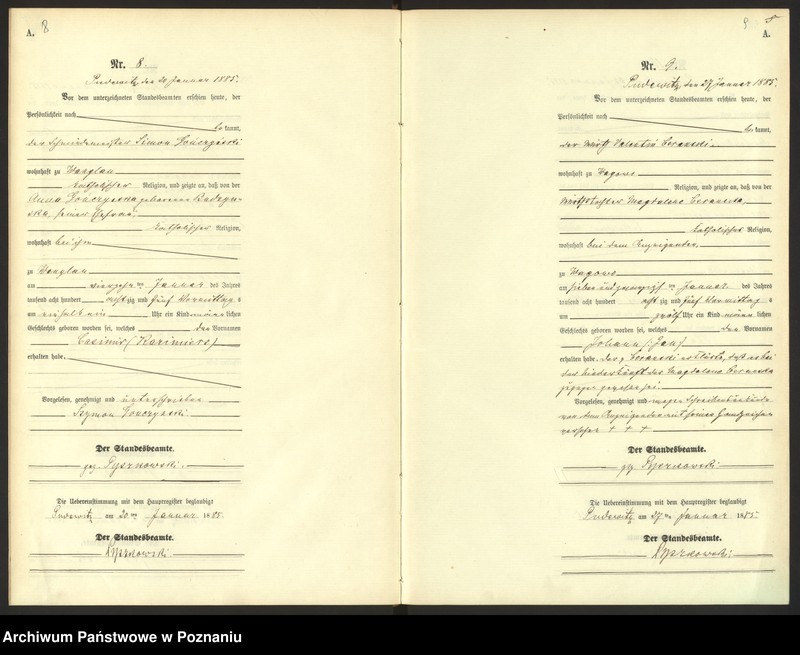 A. 8
Nr. 8.
Pudewitz, den 20 Januar 1885.
Vor dem unterzeichneten Standesbeamten erschien heute, der
Persönlichkeit nach
be kannt,
der Schneidermeister Simon
wohnhaft zu
katholischer Religion, und zeigte an, daß von der
Anna geborenen
seiner Ehefrau
katholischer Religion,
wohnhaft bei ihm
zu
am vierzehn ten Januar des Jahres
tausend acht hundert acht zig und fünf Vormittag s
um Uhr ein Kind männ lichen
Geschlechts geboren worden sei, welches den Vornamen
Casimir (Kazimierz)
erhalten habe.
Vorgelesen, genehmigt und unterschrieben
Szymon
Der Standesbeamte.
gez.
Die Uebereinstimmung mit dem Hauptregister beglaubigt
Pudewitz am 20 ten Januar 1885.
Der Standesbeamte.
9 8
A.
Nr. 9.
Pudewitz, den 27 Januar 1885.
Vor dem unterzeichneten Standesbeamten erschien heute, der
Persönlichkeit nach
be kannt,
der Wirth Valentin
wohnhaft zu
Religion, und zeigte an, daß von der
Wirthstochter Magdalena
katholischer Religion,
wohnhaft bei dem Anzeigenden,
zu
am sieben und zwanzigst en Januar des Jahres
tausend acht hundert acht zig und fünf Vormittag s
um zwölf Uhr ein Kind männ lichen
Geschlechts geboren worden sei, welches den Vornamen
Johann (Jan)
erhalten habe. Der erklärte, daß er bei
der Niederkunft der Magdalena
zugegen gewesen sei.
Vorgelesen, genehmigt und wegen Schreibensunkunde
von dem Anzeigenden mit seinem Handzeichen
versehen + + +
Der Standesbeamte.
gez.
Die Uebereinstimmung mit dem Hauptregister beglaubigt
Pudewitz am 27 ten Januar 1885.
Der Standesbeamte.
Archiwum Państwowe w Poznaniu